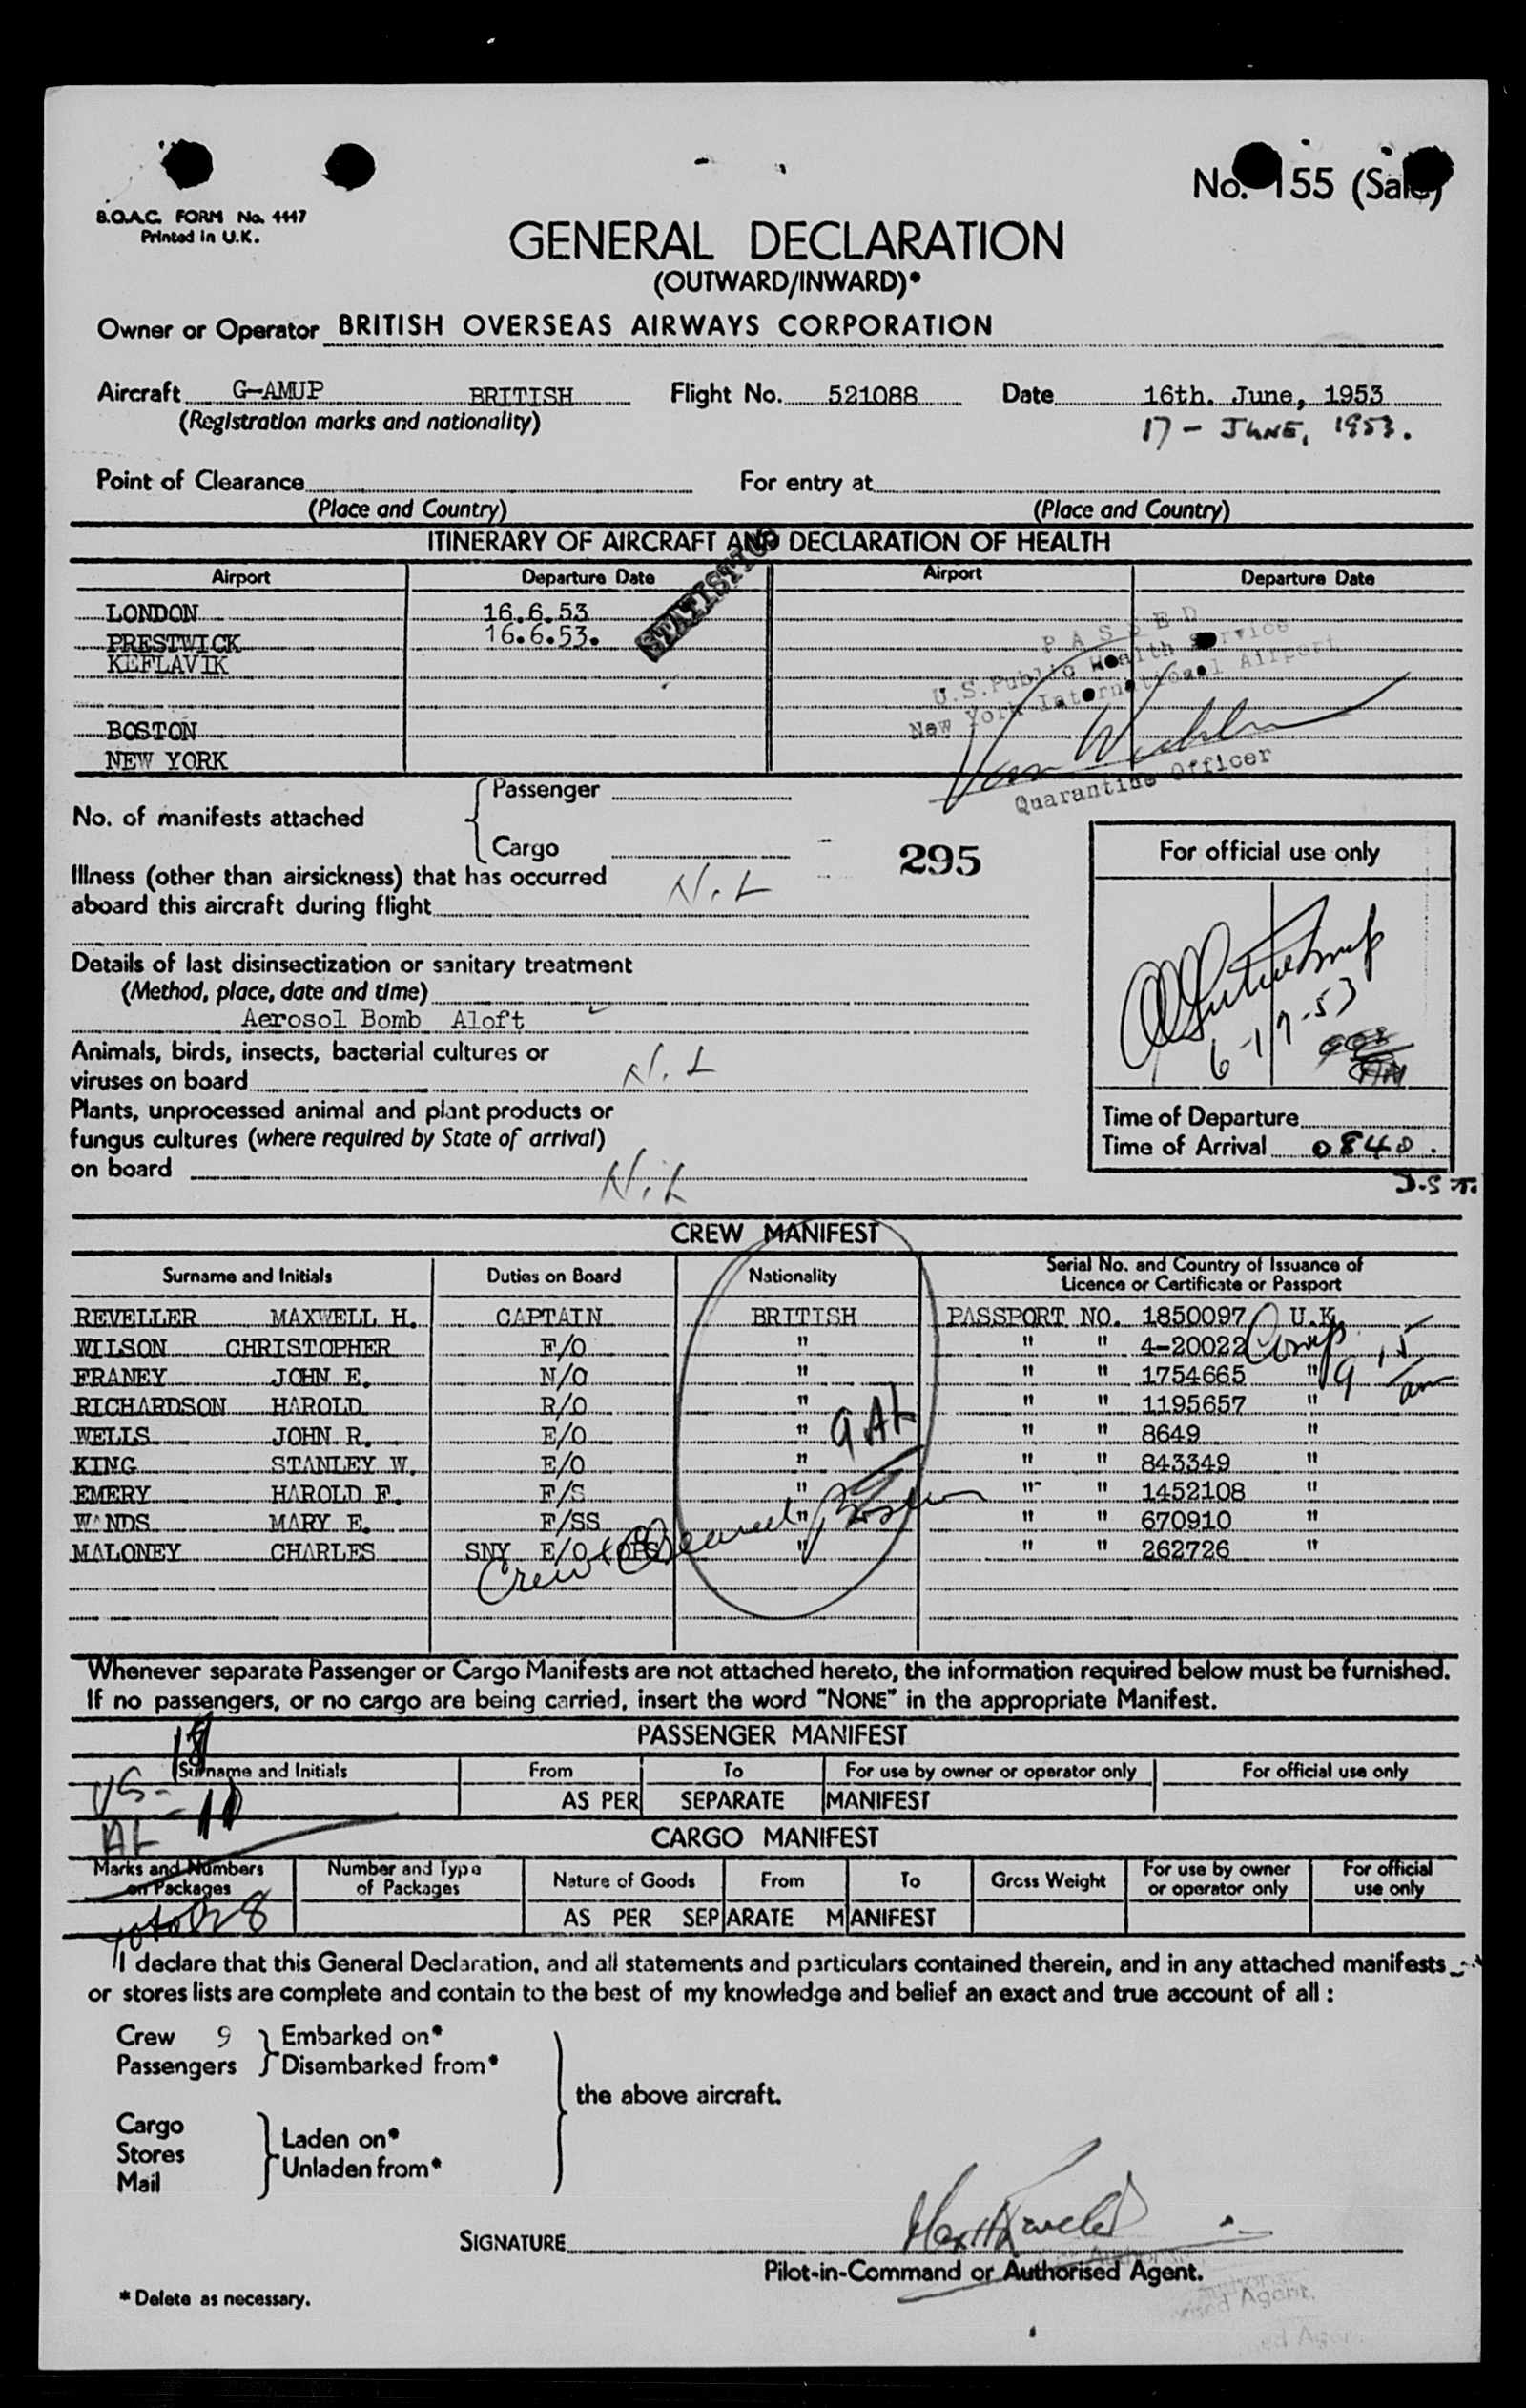 No. 155 (Sale)
B.O.A.C. FORM No. 4447
Printed in U.K.
GENERAL DECLARATION
(OUTWARD/INWARD)*
Owner or Operator BRITISH OVERSEAS AIRWAYS CORPORATION
Aircraft G-AMUP BRITISH Flight No. 521088 Date 16th. June, 1953
(Registration marks and nationality)
17 - JUNE, 1953.
Point of Clearance For entry at
(Place and Country) (Place and Country)
ITINERARY OF AIRCRAFT AND DECLARATION OF HEALTH
Airport Departure Date Airport Departure Date
LONDON 16.6.53
PRESTWICK 16.6.53.
KEFLAVIK
BOSTON
NEW YORK
STATISTICS
PASSED
U.S. Public Health Service
New York International Airport
Quarantine Officer
No. of manifests attached
Passenger
Cargo
295
Illness (other than airsickness) that has occurred
aboard this aircraft during flight NiL
Details of last disinsectization or sanitary treatment
(Method, place, date and time)
Aerosol Bomb Aloft
Animals, birds, insects, bacterial cultures or
viruses on board NiL
Plants, unprocessed animal and plant products or
fungus cultures (where required by State of arrival)
on board NiL
For official use only
6-17-53
Time of Departure
Time of Arrival 0840.
D.S.T.
CREW MANIFEST
Surname and Initials Duties on Board Nationality Serial No. and Country of Issuance of
Licence or Certificate or Passport
REVELLER MAXWELL H. CAPTAIN BRITISH PASSPORT NO. 1850097 U.K.
WILSON CHRISTOPHER F/O " " " 4-20022
FRANEY JOHN E. N/O " " " 1754665 "
RICHARDSON HAROLD R/O " " " 1195657 "
WELLS JOHN R. E/O " " " 8649 "
KING STANLEY W. E/O " " " 843349 "
EMERY HAROLD F. F/S " " " 1452108 "
WANDS MARY E. F/SS " " " 670910 "
MALONEY CHARLES SNY E/O " " " 262726 "
9 AL
Crew Cleared Boston
Whenever separate Passenger or Cargo Manifests are not attached hereto, the information required below must be furnished.
If no passengers, or no cargo are being carried, insert the word "NONE" in the appropriate Manifest.
PASSENGER MANIFEST
Surname and Initials From To For use by owner or operator only For official use only
AS PER SEPARATE MANIFEST
US-
AL
CARGO MANIFEST
Marks and Numbers on Packages Number and Type of Packages Nature of Goods From To Gross Weight For use by owner or operator only For official use only
AS PER SEPARATE MANIFEST
I declare that this General Declaration, and all statements and particulars contained therein, and in any attached manifests
or stores lists are complete and contain to the best of my knowledge and belief an exact and true account of all :
Crew 9 Embarked on*
Passengers Disembarked from*
the above aircraft.
Cargo
Stores Laden on*
Mail Unladen from*
SIGNATURE
Pilot-in-Command or Authorised Agent.
* Delete as necessary.